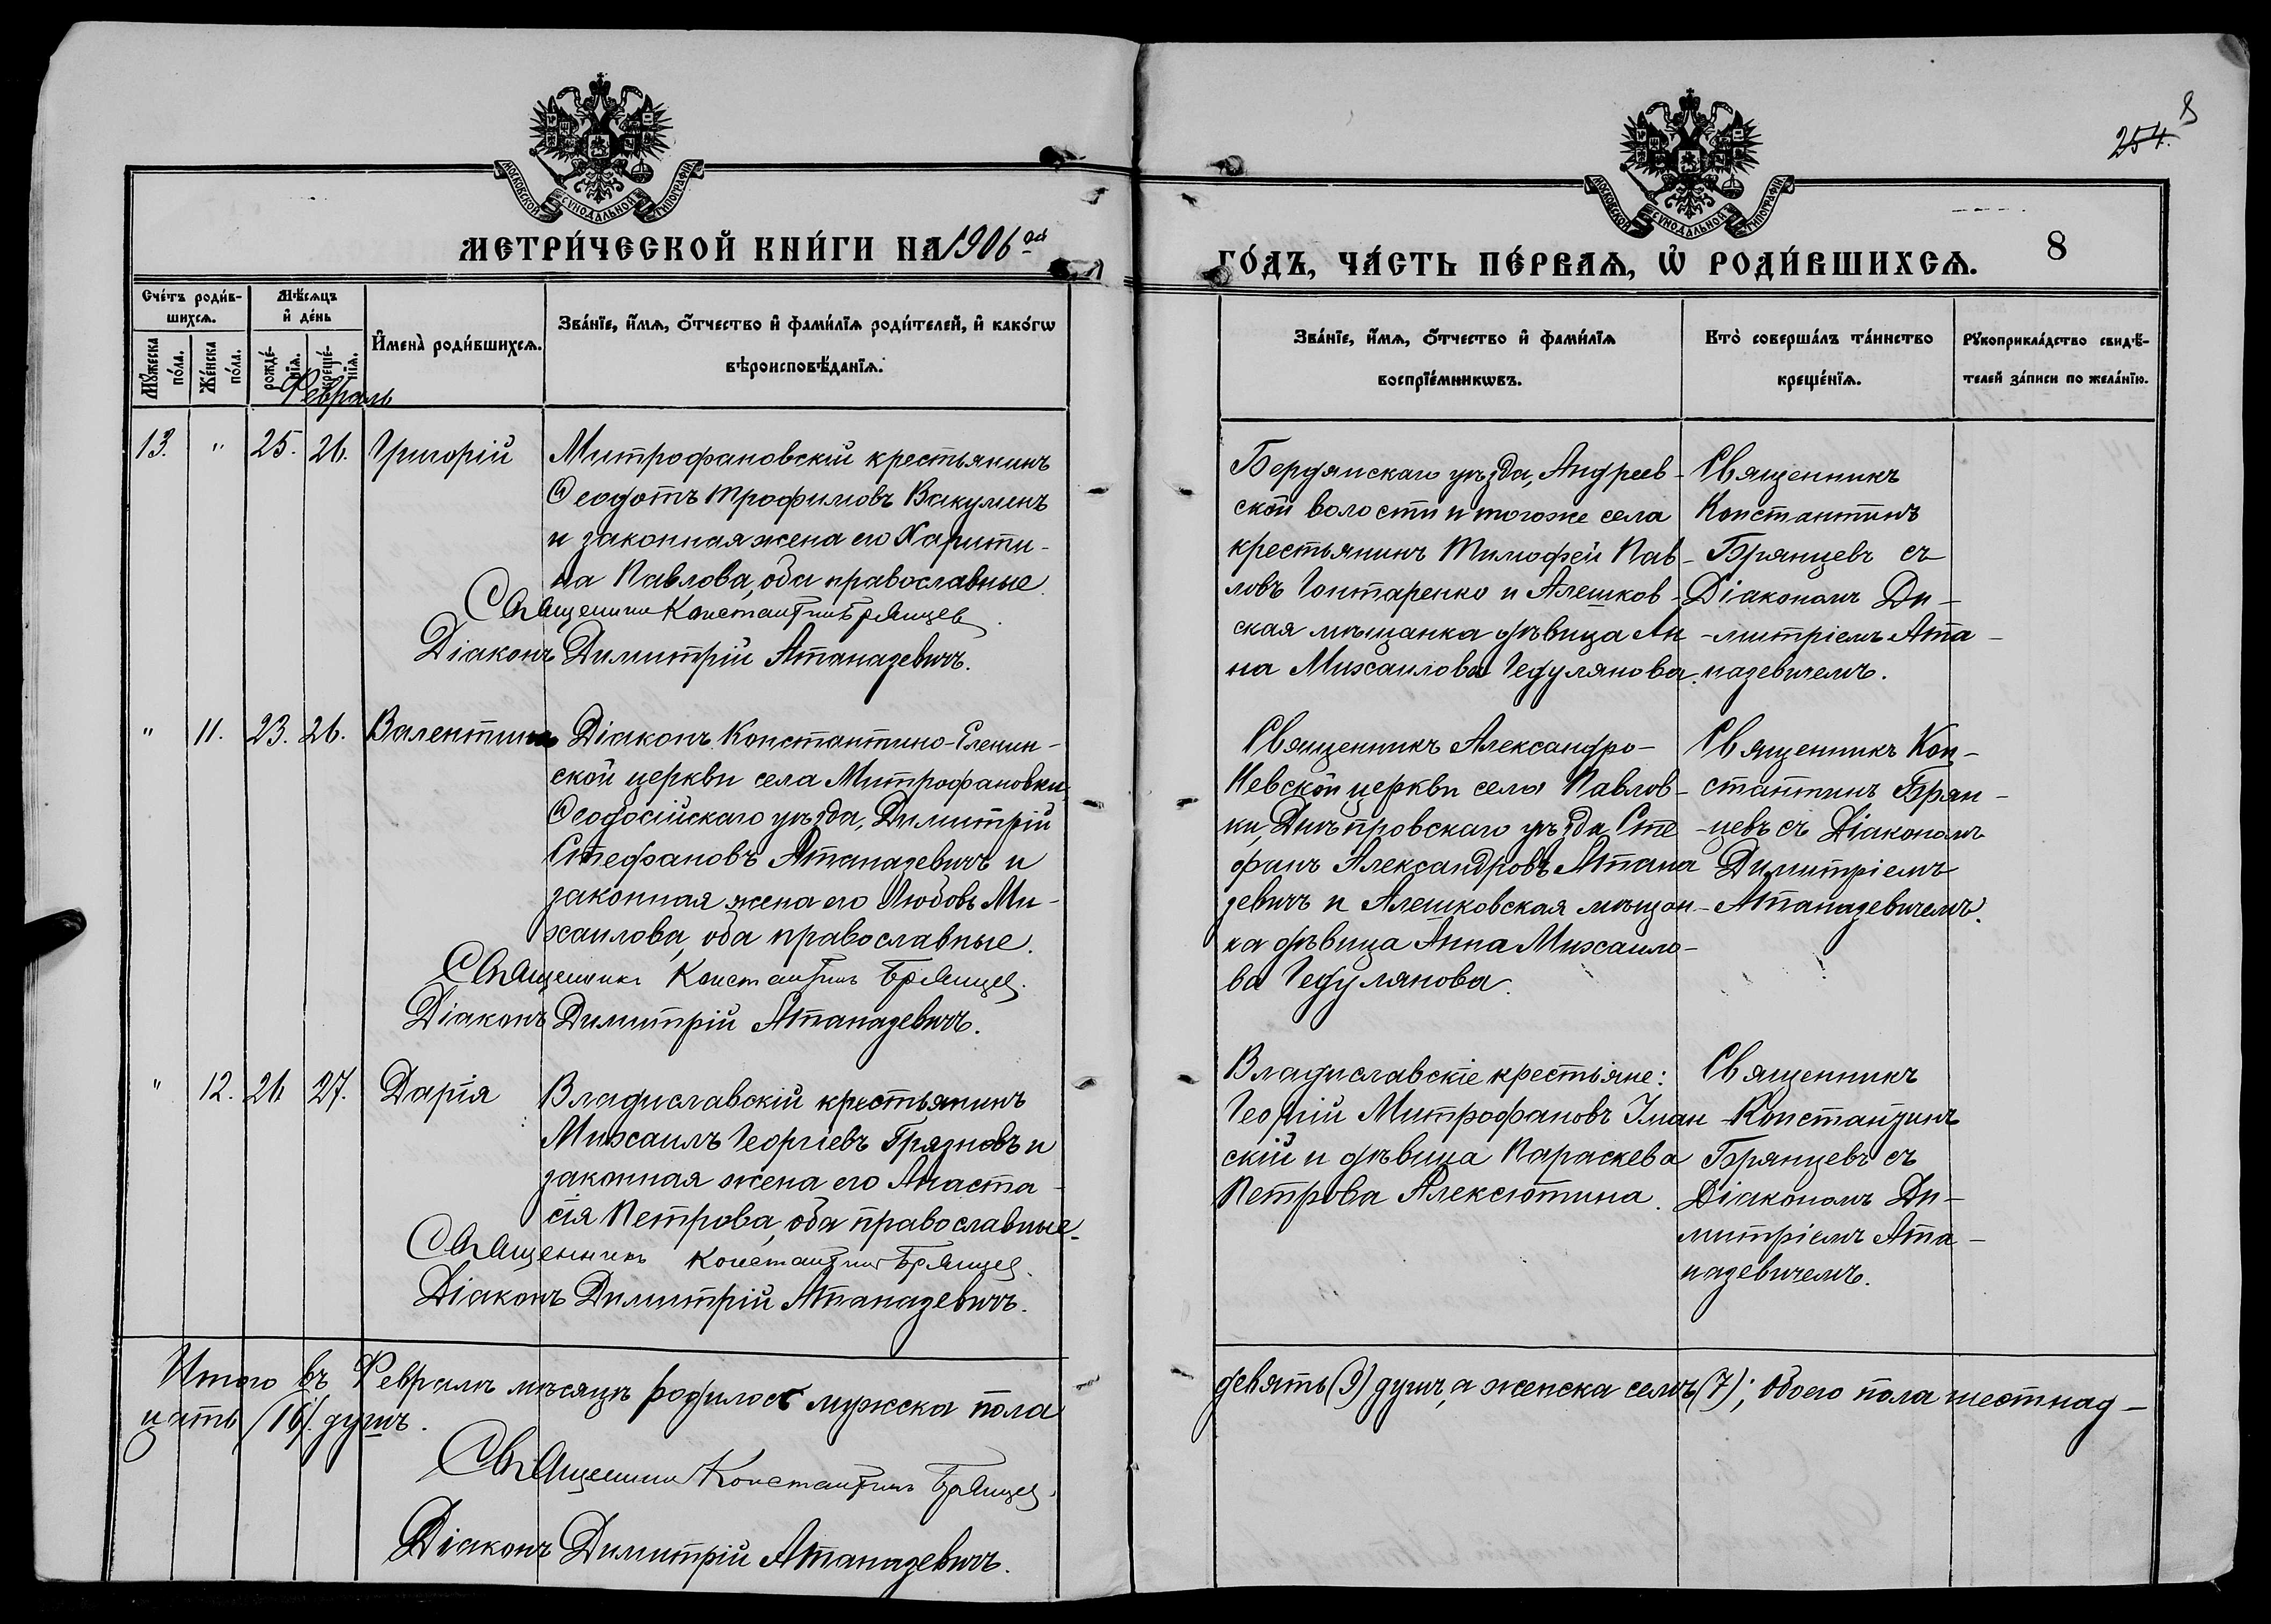 8
254.
МОСКОВСКОЙ СѴНОДАЛЬНОЙ ТИПОГРАФІИ
МОСКОВСКОЙ СѴНОДАЛЬНОЙ ТИПОГРАФІИ
МЕТРИ́ЧЕСКОЙ КНИ́ГИ НА 1906ой
ГО́ДЪ, ЧА́СТЬ ПЕ́РВАѦ, Ѡ҆ РОДИ́ВШИХСѦ. 8
Сче́тъ роди́в-
шихсѧ.
Мѣ́сѧцъ
и҆ де́нь
Мꙋ́жеска по́ла.
Же́нска по́ла.
рожде́-нїѧ.
креще́-нїѧ.
И҆мена̀ роди́вшихсѧ.
Зва́нїе, и҆́мѧ, ѻ҆́тчество и҆ фами́лїѧ роди́телей, и҆ како́гѡ
вѣроисповѣ́данїѧ.
Зва́нїе, и҆́мѧ, ѻ҆́тчество и҆ фами́лїѧ
воспрїе́мникѡвъ.
Кто̀ соверша́лъ та́инство
креще́нїѧ.
Рꙋкоприкла́дство свидѣ́-
телей за́писи по жела́нїю.
Февраль
13. " 25. 26. Григорій
Митрофановскій крестьянинъ
Ѳеодотъ Трофимовъ Вакуминъ
и законная жена его Харити-
на Павлова, оба православные.
Священникъ Константинъ Брянцев
Діаконъ Димитрій Атаназевичъ.
Бердянскаго уѣзда, Андреев-
ской волости и тогоже села
крестьянинъ Тимофей Пав-
ловъ Гонтаренко и Алешков-
ская мѣщанка дѣвица Ан-
на Михаилова Гедулянова.
Священникъ
Константинъ
Брянцевъ съ
Діакономъ Ди-
митріемъ Ата-
назевичемъ.
" 11. 23. 26. Валентина
Діаконъ Константино-Еленин-
ской церкви села Митрофановки,
Ѳеодосійскаго уѣзда, Димитрій
Стефановъ Атаназевичъ и
законная жена его Любовь Ми-
хаилова, оба православные.
Священникъ Константинъ Брянцев.
Діаконъ Димитрій Атаназевичъ.
Священникъ Александро-
Невской церкви села Павлов-
ки, Днѣпровскаго уѣзда Сте-
фанъ Александровъ Атана
зевичъ и Алешковская мѣщан-
ка дѣвица Анна Михаило-
ва Гедулянова.
Священникъ Кон-
стантинъ Брян-
цевъ съ Діакономъ
Димитріемъ
Атаназевичемъ.
" 12. 26. 27. Дарія
Владиславскій крестьянинъ
Михаилъ Георгіевъ Грязновъ и
законная жена его Анаста-
сія Петрова, оба православные.
Священникъ Константинъ Брянцев.
Діаконъ Димитрій Атаназевичъ.
Владиславскіе крестьяне:
Георгій Митрофановъ
скій и дѣвица Параскева
Петрова Алексютина.
Священникъ
Константинъ
Брянцевъ съ
Діакономъ Ди-
митріемъ Ата-
назевичемъ.
Итого въ Февралѣ мѣсяцѣ родилось мужска пола
девять (9) душъ, а женска семь (7); обоего пола шестнад-
цать (16). душъ.
Священникъ Константинъ Брянцев.
Діаконъ Димитрій Атаназевичъ.